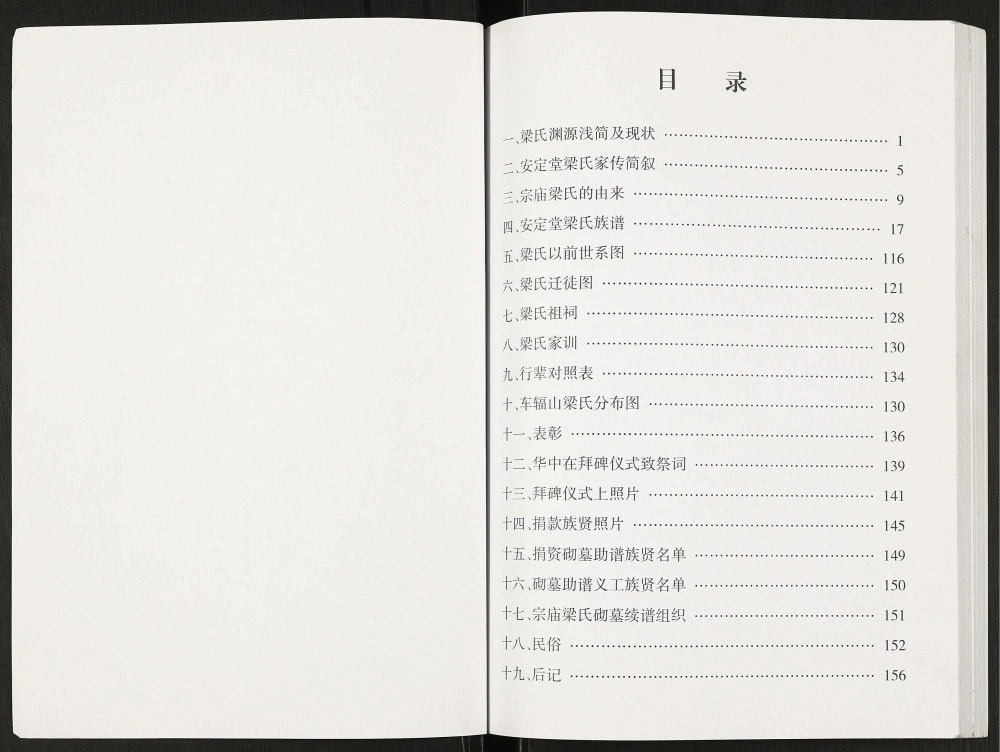 目 录
一、梁氏渊源浅简及现状 …………………………………… 1
二、安定堂梁氏家传简叙 …………………………………… 5
三、宗庙梁氏的由来 …………………………………… 9
四、安定堂梁氏族谱 …………………………………… 17
五、梁氏以前世系图 …………………………………… 116
六、梁氏迁徒图 …………………………………… 121
七、梁氏祖祠 …………………………………… 128
八、梁氏家训 …………………………………… 130
九、行辈对照表 …………………………………… 134
十、车辐山梁氏分布图 …………………………………… 130
十一、表彰 …………………………………… 136
十二、华中在拜碑仪式致祭词 …………………………………… 139
十三、拜碑仪式上照片 …………………………………… 141
十四、捐款族贤照片 …………………………………… 145
十五、捐资砌墓助谱族贤名单 …………………………………… 149
十六、砌墓助谱义工族贤名单 …………………………………… 150
十七、宗庙梁氏砌墓续谱组织 …………………………………… 151
十八、民俗 …………………………………… 152
十九、后记 …………………………………… 156